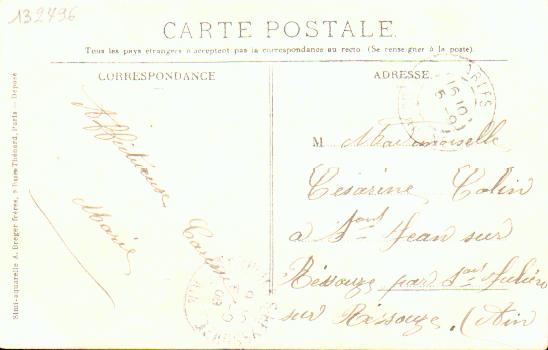 132496
CARTE POSTALE.
Tous les pays étrangers n'acceptent pas la correspondance au recto (Se renseigner à la poste).
CORRESPONDANCE
ADRESSE
Simi-aquarelle A. Breger frères, 9 Rue Thénard, Paris — Déposé
Affectueuse
Caresse
Marie
M Mademoiselle
Césarine Colin
a St Jean sur
Réssouze par St Julien
sur Réssouze. (Ain